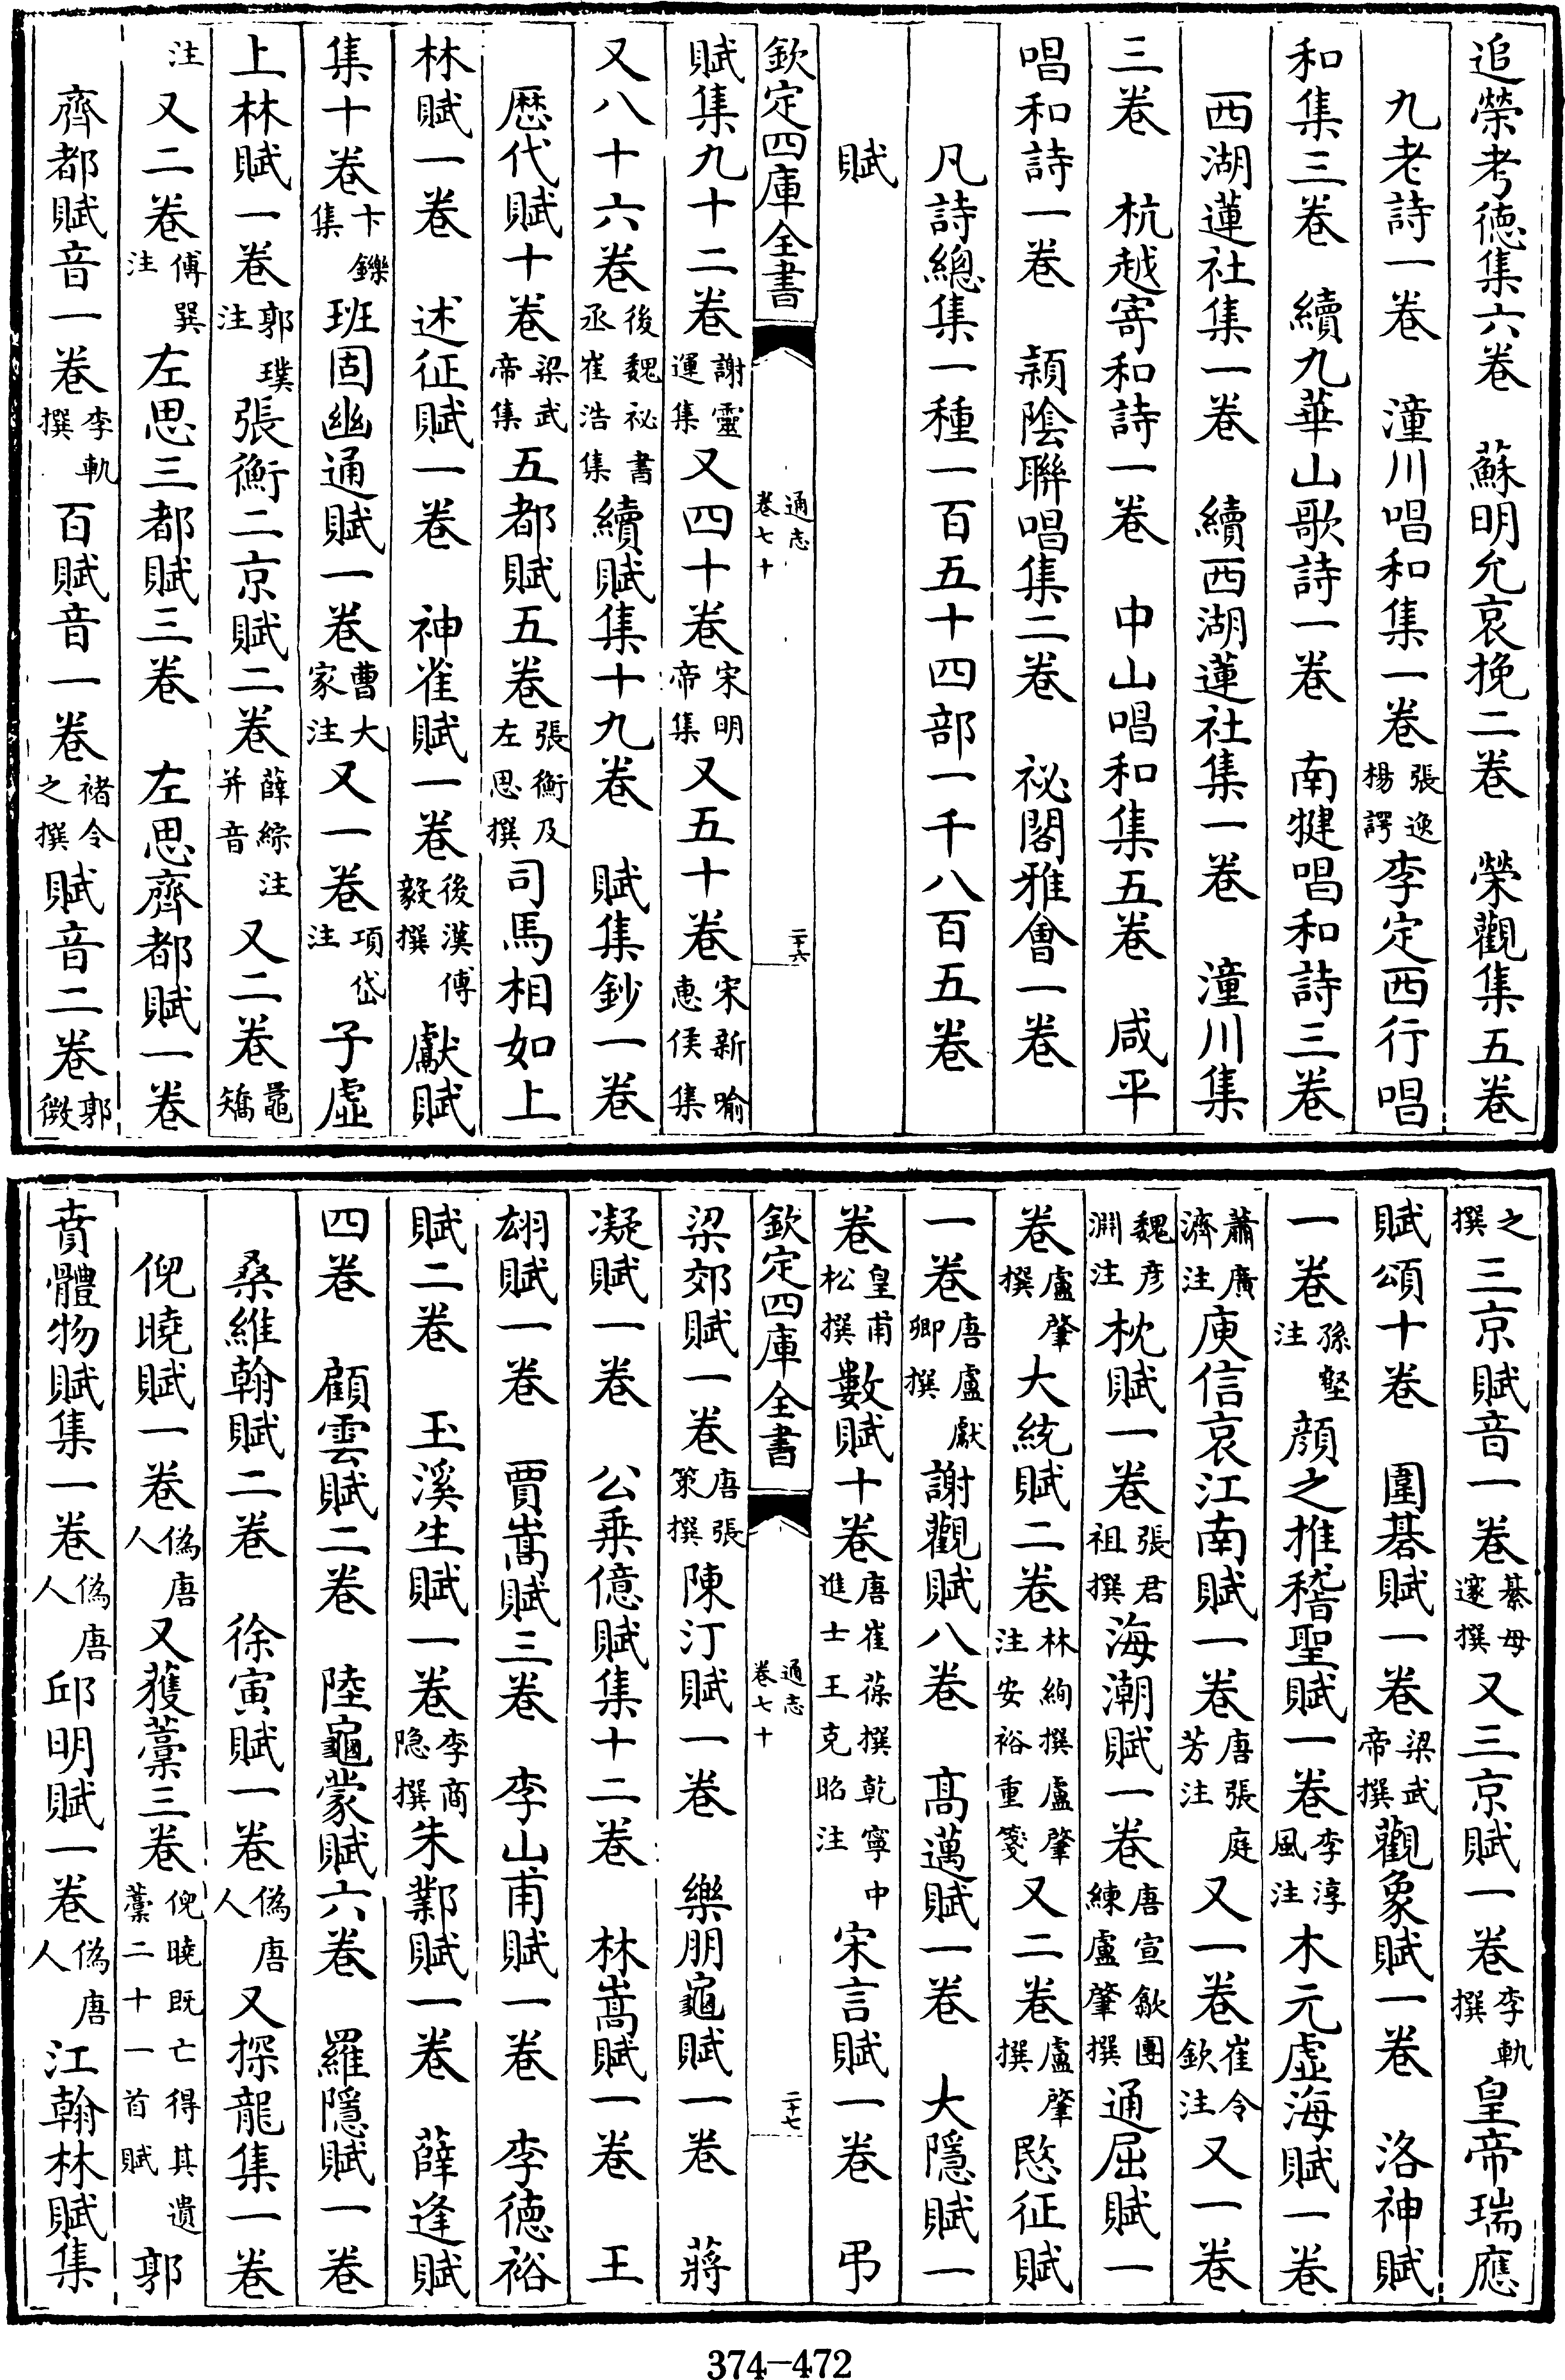 追榮考德集六卷　蘇明允哀挽二卷　榮觀集五卷
九老詩一卷　潼川唱和集一卷張逸楊諤李定西行唱
和集三卷　續九華山歌詩一卷　南犍唱和詩三卷
西湖蓮社集一卷　續西湖蓮社集一卷　潼川集
三卷　杭越寄和詩一卷　中山唱和集五卷　咸平
唱和詩一卷　潁陰聯唱集二卷　祕閣雅會一卷
凡詩總集一種一百五十四部一千八百五卷
賦
欽定四庫全書　通志卷七十　二十六
賦集九十二卷謝靈運集又四十卷宋明帝集又五十卷宋新喻惠侯集
又八十六卷後魏祕書丞崔浩集續賦集十九卷　賦集鈔一卷
歷代賦十卷梁武帝集五都賦五卷張衡及左思撰司馬相如上
林賦一卷　述征賦一卷　神雀賦一卷後漢傅毅撰獻賦
集十卷卞鑠集班固幽通賦一卷曹大家注又一卷項岱注子虛
上林賦一卷郭璞注張衡二京賦二卷薛綜注并音又二卷鼂矯
注又二卷傅巽注左思三都賦三卷　左思齊都賦一卷
齊都賦音一卷李軌撰百賦音一卷褚令之撰賦音二卷郭微
之撰三京賦音一卷綦毋邃撰又三京賦一卷李軌撰皇帝瑞應
賦頌十卷　圍碁賦一卷梁武帝撰觀象賦一卷　洛神賦
一卷孫壑注顏之推稽聖賦一卷李淳風注木元虛海賦一卷
蕭廣濟注庾信哀江南賦一卷唐張庭芳注又一卷崔令欽注又一卷
魏彥淵注枕賦一卷張君祖撰海潮賦一卷唐宣歙團練盧肇撰通屈賦一
卷盧肇撰大統賦二卷林絢撰盧肇注安裕重箋又二卷盧肇撰愍征賦
一卷唐盧獻卿撰謝觀賦八卷　高邁賦一卷　大隱賦一
卷皇甫松撰數賦十卷唐崔葆撰乾寧中進士王克昭注宋言賦一卷　弔
欽定四庫全書　通志卷七十　二十七
梁郊賦一卷唐張策撰陳汀賦一卷　樂朋龜賦一卷　蔣
凝賦一卷　公乘億賦集十二卷　林嵩賦一卷　王
翃賦一卷　賈嵩賦三卷　李山甫賦一卷　李德裕
賦二卷　玉溪生賦一卷李商隱撰朱鄴賦一卷　薛逢賦
四卷　顧雲賦二卷　陸龜蒙賦六卷　羅隱賦一卷
桑維翰賦二卷　徐寅賦一卷偽唐人又探龍集一卷
倪曉賦一卷偽唐人又獲藁三卷倪曉既亡得其遺藁二十一首賦郭
賁體物賦集一卷偽唐人邱明賦一卷偽唐人江翰林賦集
374-472